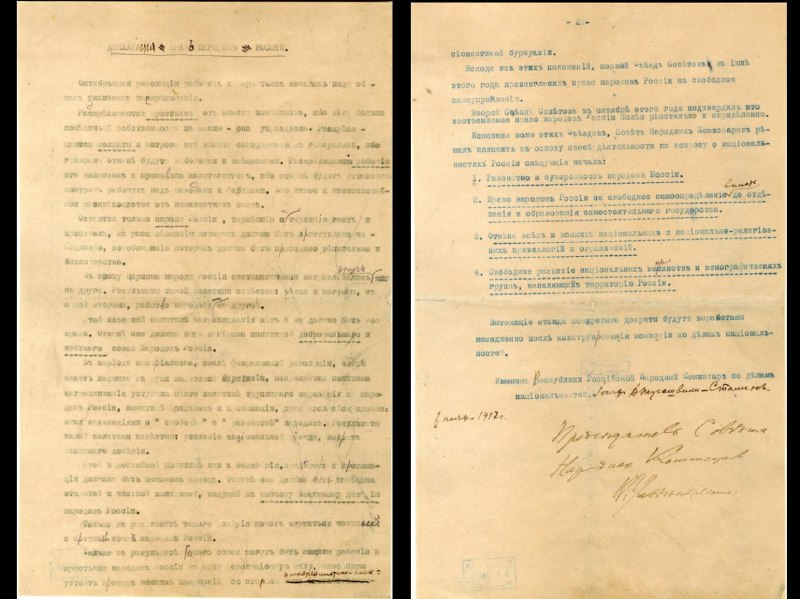 ДЕКЛАРАЦІЯ ПРАВЪ НАРОДОВЪ РОССІИ.
Октябрьская революція рабочихъ и крестьянъ началась подъ об-
щимъ знаменемъ раскрѣпощенія.
Раскрѣпощаются крестьяне отъ власти помѣщиковъ, ибо нѣтъ больше
помѣщичьей собственности на землю - она упразднена. Раскрѣпо-
щаются солдаты и матросы отъ власти самодержавныхъ генераловъ, ибо
генералы отнынѣ будутъ выборными и смѣняемыми. Раскрѣпощаются рабочіе
отъ капризовъ и произвола капиталистовъ, ибо отнынѣ будетъ установленъ
контроль рабочихъ надъ заводами и фабриками. Все живое и жизнеспособ-
ное раскрѣпощается отъ ненавистныхъ оковъ.
Остаются только народы Россіи, терпѣвшіе и терпящіе гнетъ и
произволъ, къ
должно быть проведено рѣшительно и
безповоротно.
Въ эпоху царизма народы Россіи систематически натравливались другъ
на друга. Результаты такой политики извѣстны: рѣзня и погромы, съ
одной стороны, рабство народовъ съ другой.
Этой позорной политикѣ натравливанія нѣтъ и не должно быть воз-
врата. Отнынѣ она должна быть замѣнена политикой добровольнаго и
честнаго союза народовъ Россіи.
Въ періодъ имперіализма, послѣ февральской революціи, когда
власть перешла въ руки кадетской буржуазіи, неприкрытая политика
натравливанія уступила мѣсто политикѣ трусливаго недовѣрія къ наро-
дамъ Россіи, политикѣ придирокъ и провокаціи, прикрывающейся словес-
ными заявленіями о "свободѣ" и "равенствѣ" народовъ. Результаты
такой политики извѣстны: усиленіе національной вражды, подрывъ
взаимнаго довѣрія.
Этой недостойной политикѣ лжи и недовѣрія, придирокъ и провока-
ціи долженъ быть положенъ конецъ. Отнынѣ она должна быть замѣнена
открытой и честной политикой, ведущей къ полному взаимному довѣрію
народовъ Россіи.
Только въ результатѣ такого довѣрія можетъ сложиться честный
и прочный союзъ народовъ Россіи.
Только въ результатѣ такого союза могутъ быть спаяны рабочіе и
крестьяне народовъ Россіи въ одну революціонную силу, способную
устоять противъ всякихъ покушеній со стороны имперіалистско-аннек-
- 2 -
сіонистской буржуазіи.
Исходя изъ этихъ положеній, первый съѣздъ Совѣтовъ въ іюнѣ
этого года провозгласилъ право народовъ Россіи на свободное
самоуправленіе.
Второй Съѣздъ Совѣтовъ въ октябрѣ этого года подтвердилъ это
неотъемлемое право народовъ Россіи болѣе рѣшительно и опредѣленно.
Исполняя волю этихъ съѣздовъ, Совѣтъ Народныхъ Комиссаровъ рѣ-
шилъ положить въ основу своей дѣятельности по вопросу о національ-
ностяхъ Россіи слѣдующія начала:
1. Равенство и суверенность народовъ Россіи.
2. Право народовъ Россіи на свободное самоопредѣленіе вплоть до отдѣ-
ленія и образованія самостоятельнаго государства.
3. Отмѣна всѣхъ и всякихъ національныхъ и національно-религіоз-
ныхъ привиллегій и ограниченій.
4. Свободное развитіе національныхъ меньшинствъ и этнографическихъ
группъ, населяющихъ территорію Россіи.
Вытекающіе отсюда конкретные декреты будутъ выработаны
немедленно послѣ конструированія комиссіи по дѣламъ національ-
ностей.
Именемъ Республики Россійской Народный Комиссаръ по дѣламъ
національностей Іосифъ Джугашвили-Сталинъ.
2 ноябр. 1917 г.
Председатель Совета
Народных Комиссаров
В. Ульянов (Ленин)